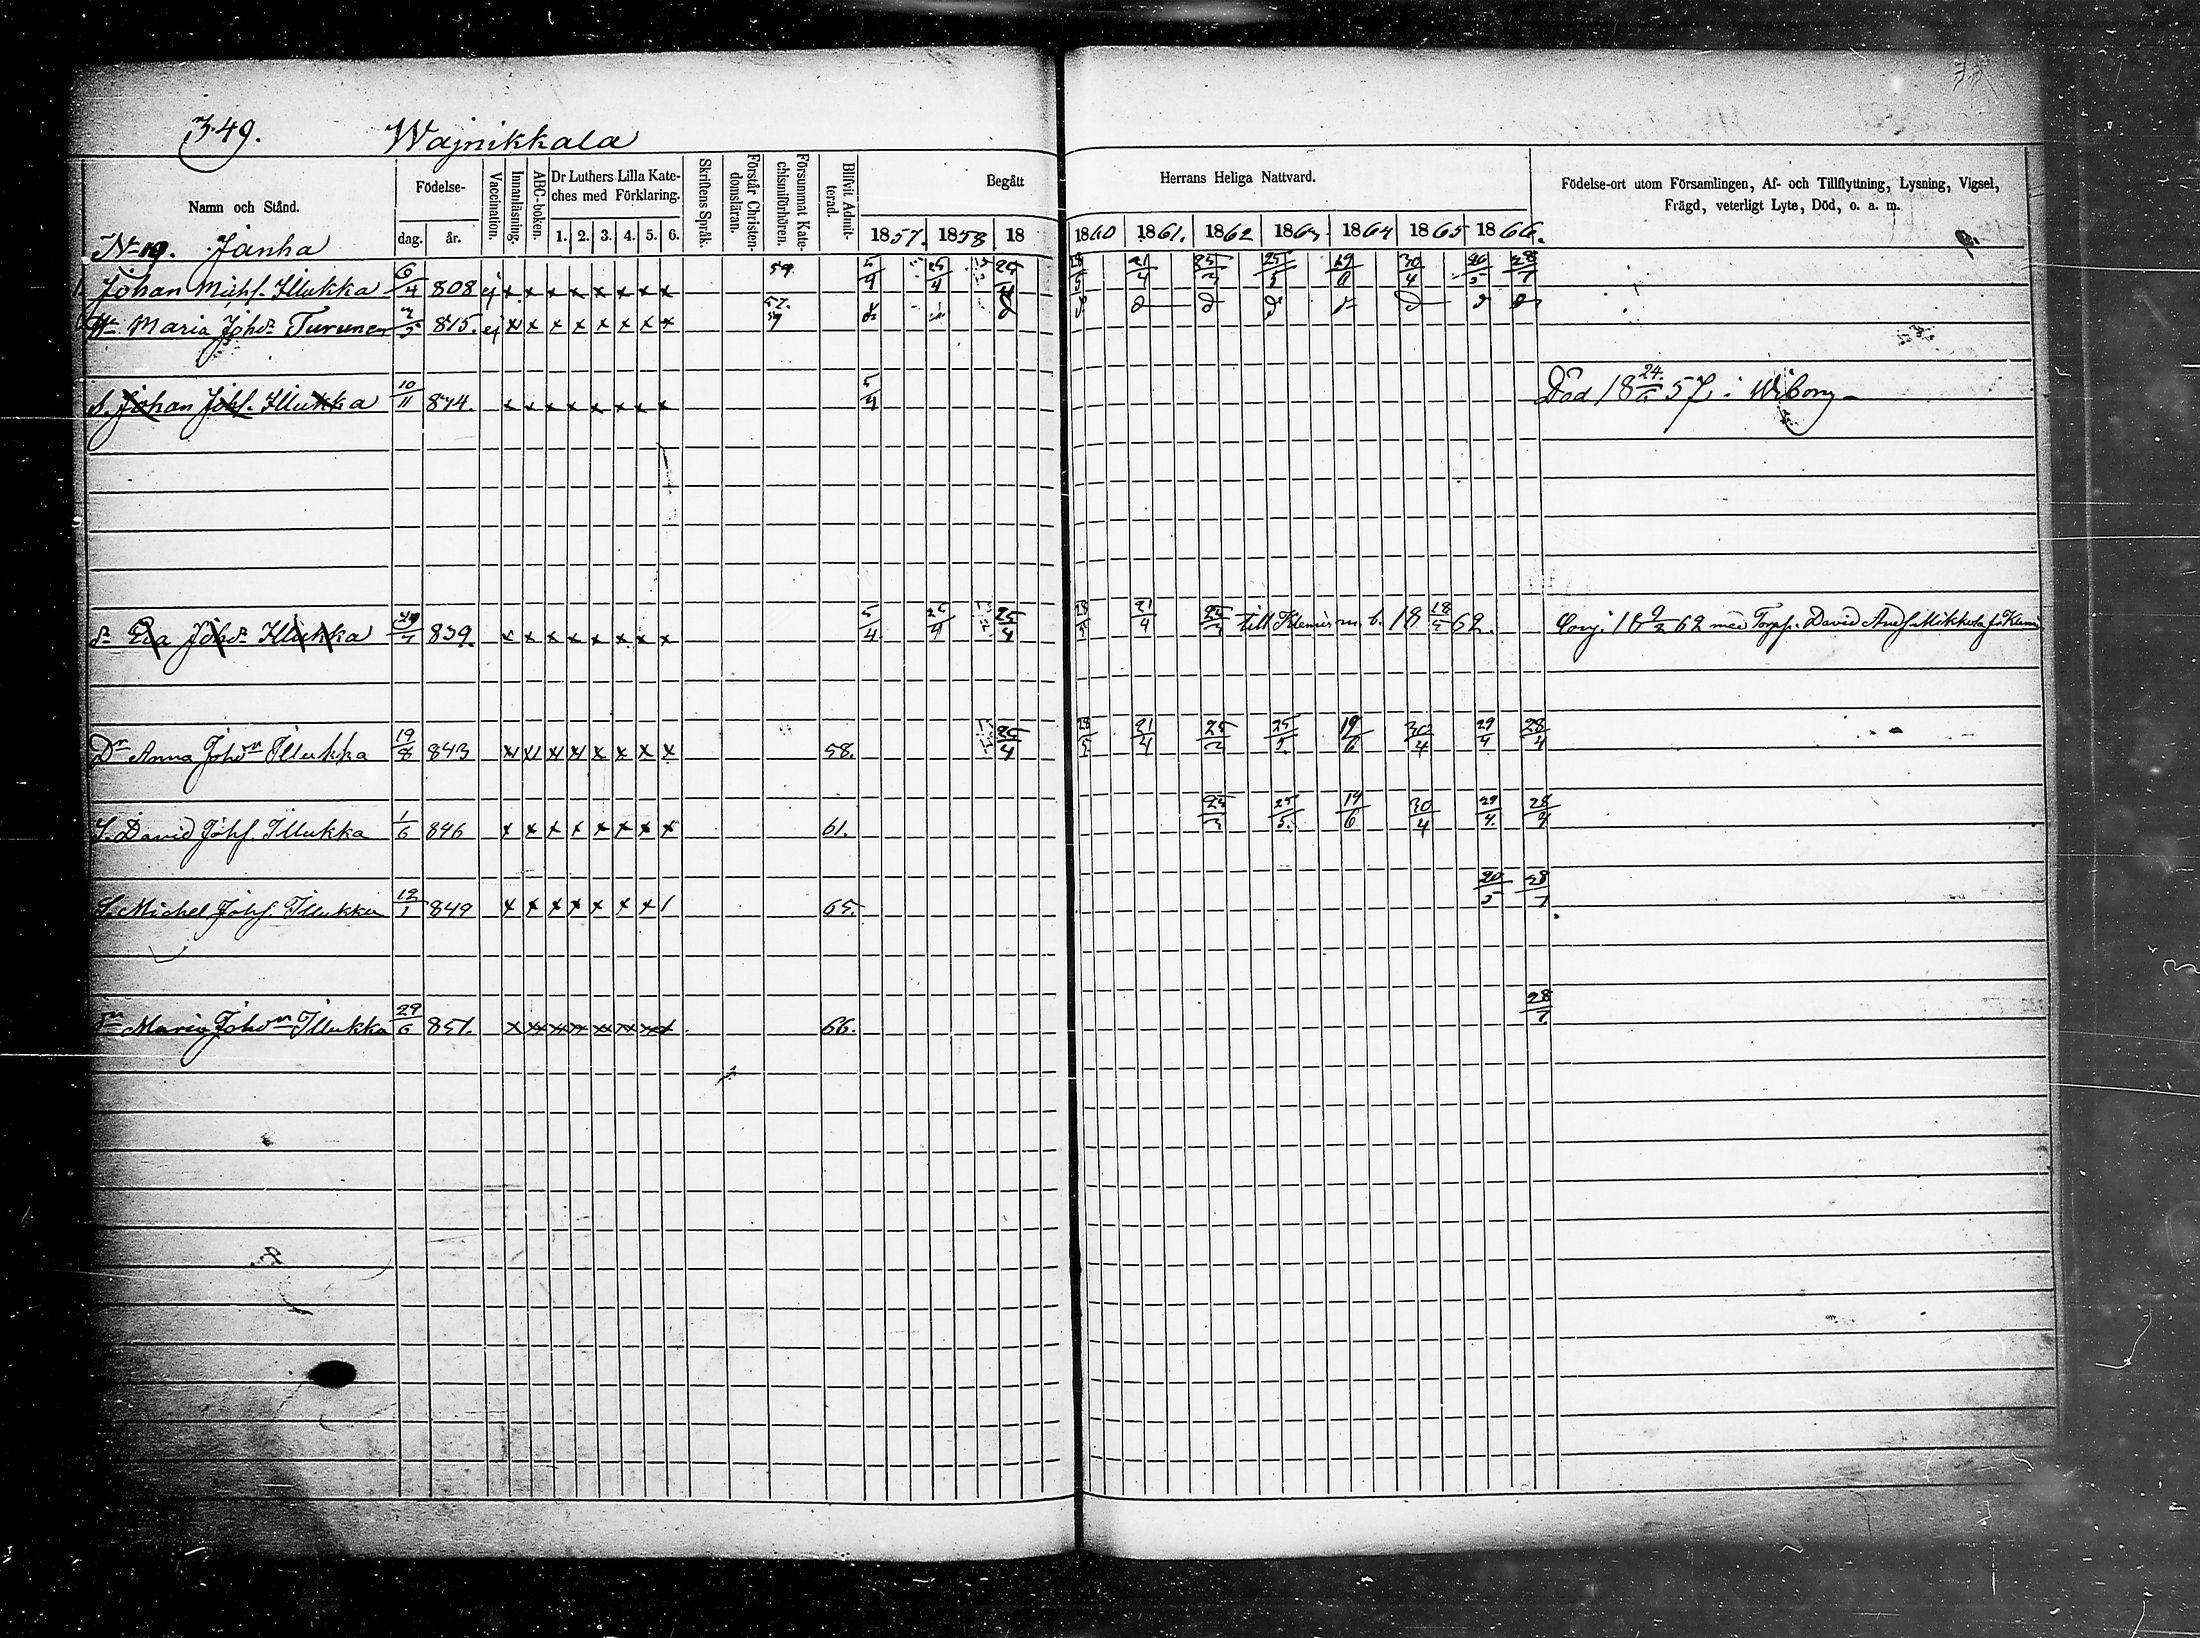 349. Wajnikkala
Namn och Stånd. Födelse- dag. år. Vaccination. Innanläsning. ABC-boken. Dr Luthers Lilla Kate-ches med Förklaring. 1. 2. 3. 4. 5. 6. Skriftens Språk. Förstår Christen-domsläran. Försummat Kate-chismiförhören. Blifvit Admit-terad. Begått Herrans Heliga Nattvard. Födelse-ort utom Församlingen, Af- och Tillflyttning, Lysning, Vigsel,
Frägd, veterligt Lyte, Död, o. a. m.
1857. 1858 18 1860 1861. 1862 1863 1864 1865 1866.
No 19. Janha
Johan Michs. Illukka 6/4 808 ej x x x x x x x x 59 5/4 25/4 25/4 28/5 21/4 25/3 25/5 19/6 30/4 20/5 28/7
Hn Maria Johdr Turunen 815. ej x x x x x x x x 57. 59 d d d d d d d d d d
S. Johan Johs. Illukka 10/11 834. x x x x x x x x 5/4 Död 18 24/ 57 i Wiborg
Dr Eva Johdr Illukka 839. x x x x x x x x 5/4 25/4 25/4 28/5 21/4 25/3 till Klemis m. b. 18 18/5 62. Copj. 18 9/2 62 med Torps. David Ands Mikkola
Dr Anna Johdr Illukka 19/8 843 x x x x x x x x 58. 25/4 28/5 21/4 25/3 25/5 19/6 30/4 29/4 28/4
S. David Johs. Illukka 1/6 846 x x x x x x x x 61. 25/3 25/5. 19/6 30/4 29/4. 28/4
S. Michel Johs. Illukka 12/1 849 x x x x x x x 1 65. 20/5 28/7
Dr Maria Johdr Illukka 29/6 851. x x x x x x x x 66. 28/7